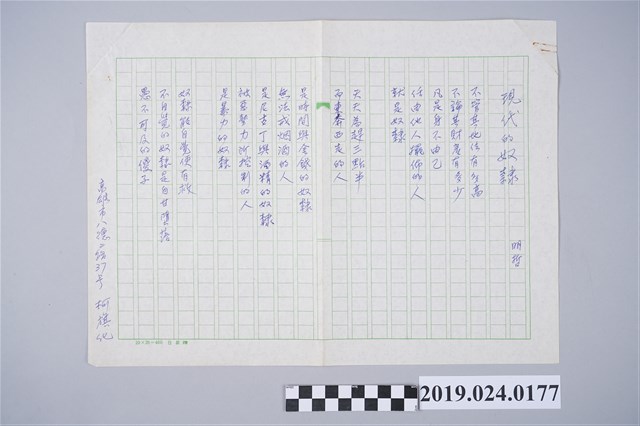 現代的奴隸
明哲
不管其地位有多高
不論其財產有多少
凡是身不由己
任由他人擺佈的人
就是奴隸
天天為趕三點半
而東奔西走的人
是時間與金錢的奴隸
無法戒烟酒的人
是尼古丁與酒精的奴隸
被惡勢力所控制的人
是暴力的奴隸
奴隸能自覺便有救
不自覺的奴隸是自甘墮落
愚不可及的傻子
高雄市八德二路37号 柯旗化
2019.024.0177